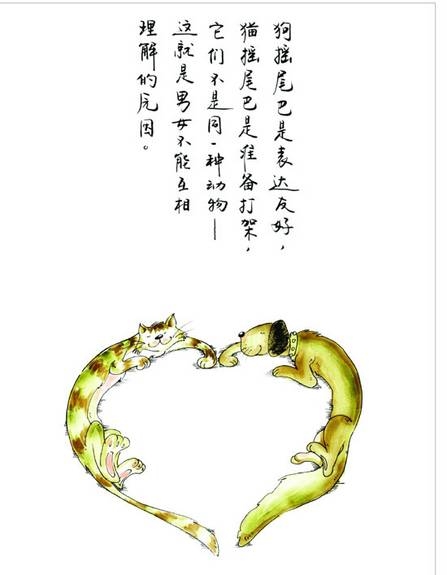 狗摇尾巴是表达友好，
猫摇尾巴是准备打架，
它们不是同一种动物—
这就是男女不能互相
理解的原因。